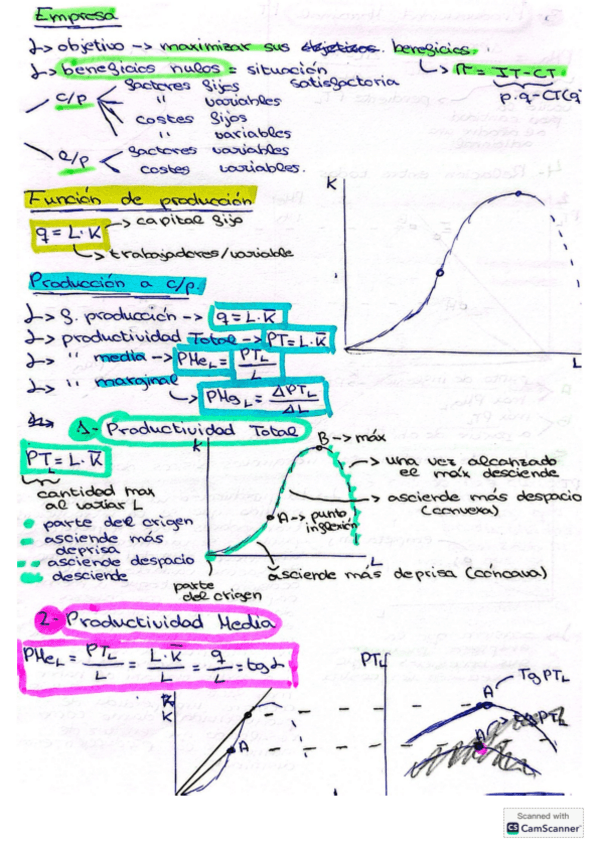 Empresa
↳ objetivo → maximizar sus objetivos. beneficios.
↳ beneficios nulos = situación satisfactoria
↳ π = IT - CT
p·q - CT(q
c/p
factores fijos
" variables
costes fijos
" variables
l/p
factores variables
costes variables.
Función de producción
q = L·K → capital fijo
↳ trabajadores/variable
K
L
Producción a c/p.
↳ f. producción → q = L·K̄
↳ productividad Total → PT = L·K̄
↳ " media → PMe_L = PT_L / L
↳ " marginal
↳ PMg_L = ΔPT_L / ΔL
1- Productividad Total
PT_L = L·K̄
cantidad max
al variar L
parte del origen
asciende más
deprisa
asciende despacio
desciende
K
B → máx
→ una vez alcanzado
el máx desciende
→ asciende más despacio
(convexa)
A → punto
inflexión
L
asciende más deprisa (cóncava)
parte
del origen
2- Productividad Media
PMe_L = PT_L / L = L·K̄ / L = q / L = tg α
K
A
PT_L
A
Tg PT_L
A
PT_L
Scanned with
CS CamScanner